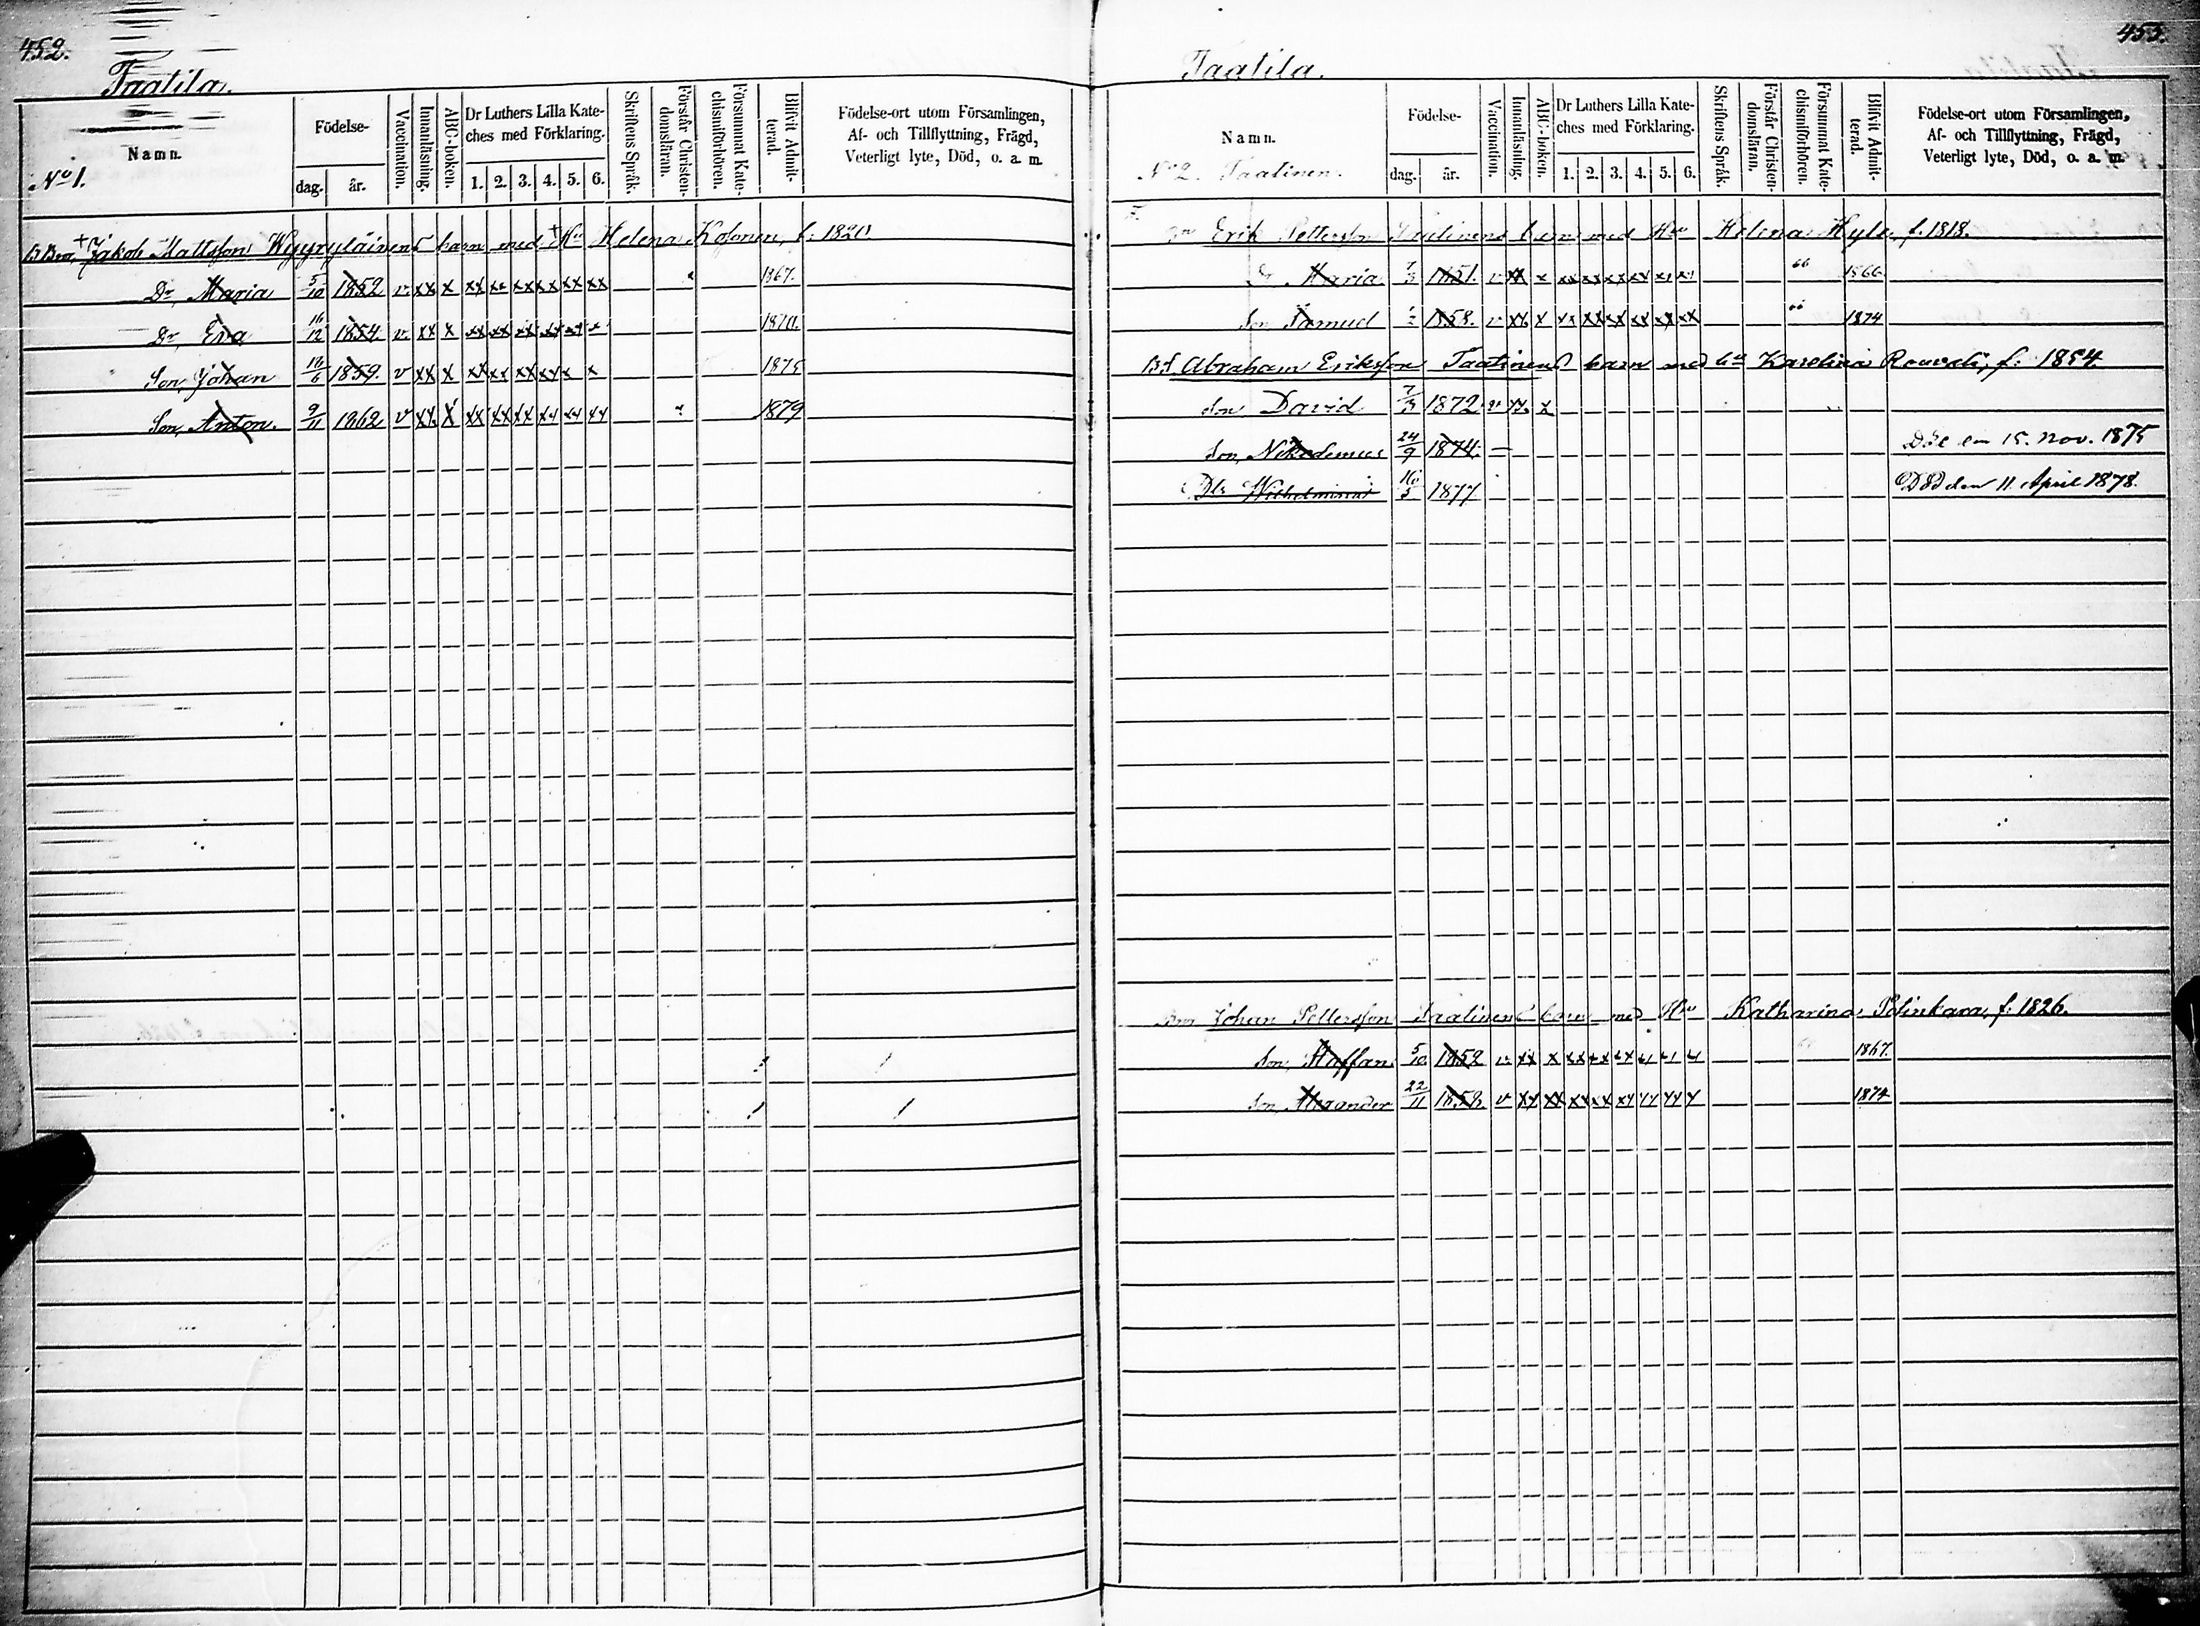 452.
Taatila.
Namn.
No 1.
Födelse-
dag.
år.
Vaccination.
Innanläsning.
ABC-boken.
Dr Luthers Lilla Kate-
ches med Förklaring.
1. 2. 3. 4. 5. 6.
Skriftens Språk.
Förstår Christen-
domsläran.
Försummat Kate-
chismiförhören.
Blifvit Admit-
terad.
Födelse-ort utom Församlingen,
Af- och Tillflyttning, Frägd,
Veterligt lyte, Död, o. a. m.
+ Jakob Mattsson Kyyryläinens barn med + Hu Helena Kosonen, f. 1820
Dr, Maria 5/10 1852 v. xx x xx xx xx xx xx xx 1867.
Dr, Eva 16/12 1854. v. xx x xx xx xx xx xx x 1870.
Son, Johan 18/6 1859. v xx x xx xx xx xx x x 1875
Son, Anton. 9/11 1862 v xx x xx xx xx xx xx xx 1879
453.
Taatila.
Namn.
No 2. Taatinen.
Födelse-
dag.
år.
Vaccination.
Innanläsning.
ABC-boken.
Dr Luthers Lilla Kate-
ches med Förklaring.
1. 2. 3. 4. 5. 6.
Skriftens Språk.
Förstår Christen-
domsläran.
Försummat Kate-
chismiförhören.
Blifvit Admit-
terad.
Födelse-ort utom Församlingen,
Af- och Tillflyttning, Frägd,
Veterligt lyte, Död, o. a. m.
Erik Pettersson Taatinens barn med Hu Helena Hyle, f. 1818.
Maria 7/3 1851. v xx x xx xx xx xx xx xx 1866
Son Samuel 1858. v xx x xx xx xx xx xx xx 1874
Abraham Eriksson Taatinens barn med Hu Karolina Rouvali, f: 1854.
Son, David 7/3 1872 v xx x
Son, Nikodemus 24/9 1874. — Död den 15. Nov. 1875
Dr Wilhelmina 16/5 1877 Död den 11 April 1878.
Johan Pettersson Taatinens barn med Hu Katharina, f. 1826.
Son, Staffan 5/10 1852 v xx x xx xx xx 1867.
Son, Alexander 22/11 1858. v xx xx xx xx xx 1874